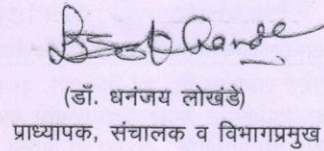 (डॉ. धनंजय लोखंडे)
प्राध्यापक, संचालक व विभागप्रमुख